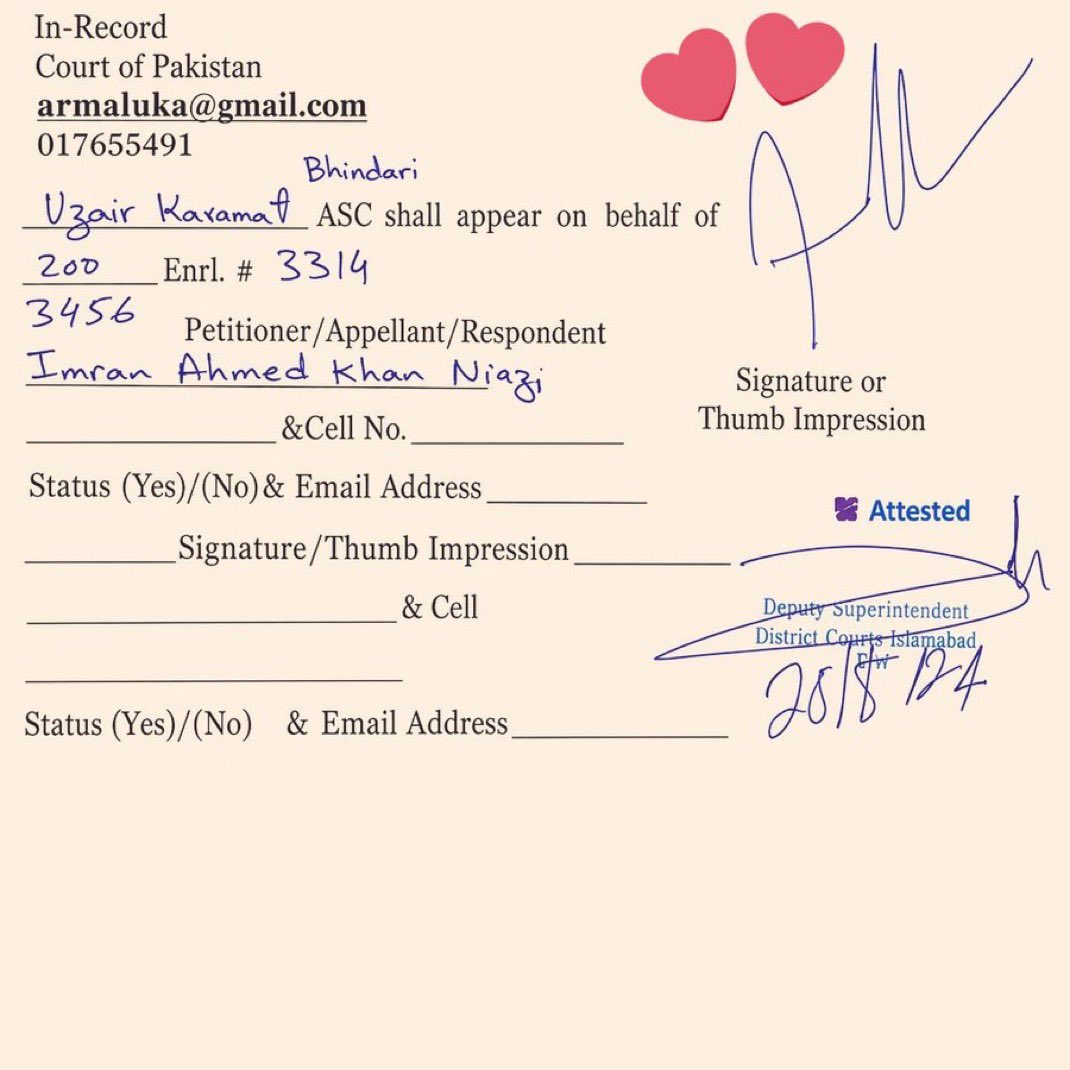 In-Record
Court of Pakistan
armaluka@gmail.com
017655491
Bhindari
Uzair Karamat ASC shall appear on behalf of
200 Enrl. # 3314
3456
Petitioner/Appellant/Respondent
Imran Ahmed Khan Niazi
&Cell No.
Status (Yes)/(No) & Email Address
Signature/Thumb Impression
& Cell
Status (Yes)/(No) & Email Address
Signature or
Thumb Impression
Attested
Deputy Superintendent
District Courts Islamabad